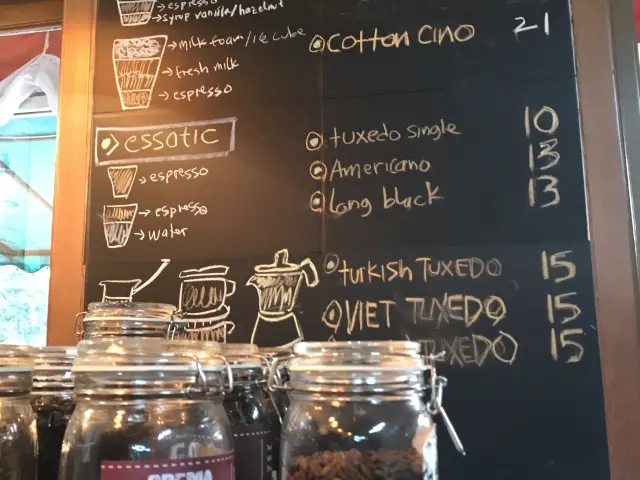 espresso
syrup vanilla/hazelnut
milk foam/ice cube
fresh milk
espresso
cotton cino 21
essotic
espresso
espresso
water
tuxedo single 10
Americano 13
Long black 13
turkish TUXEDO 15
VIET TUXEDO 15
TUXEDO 15
CREMA